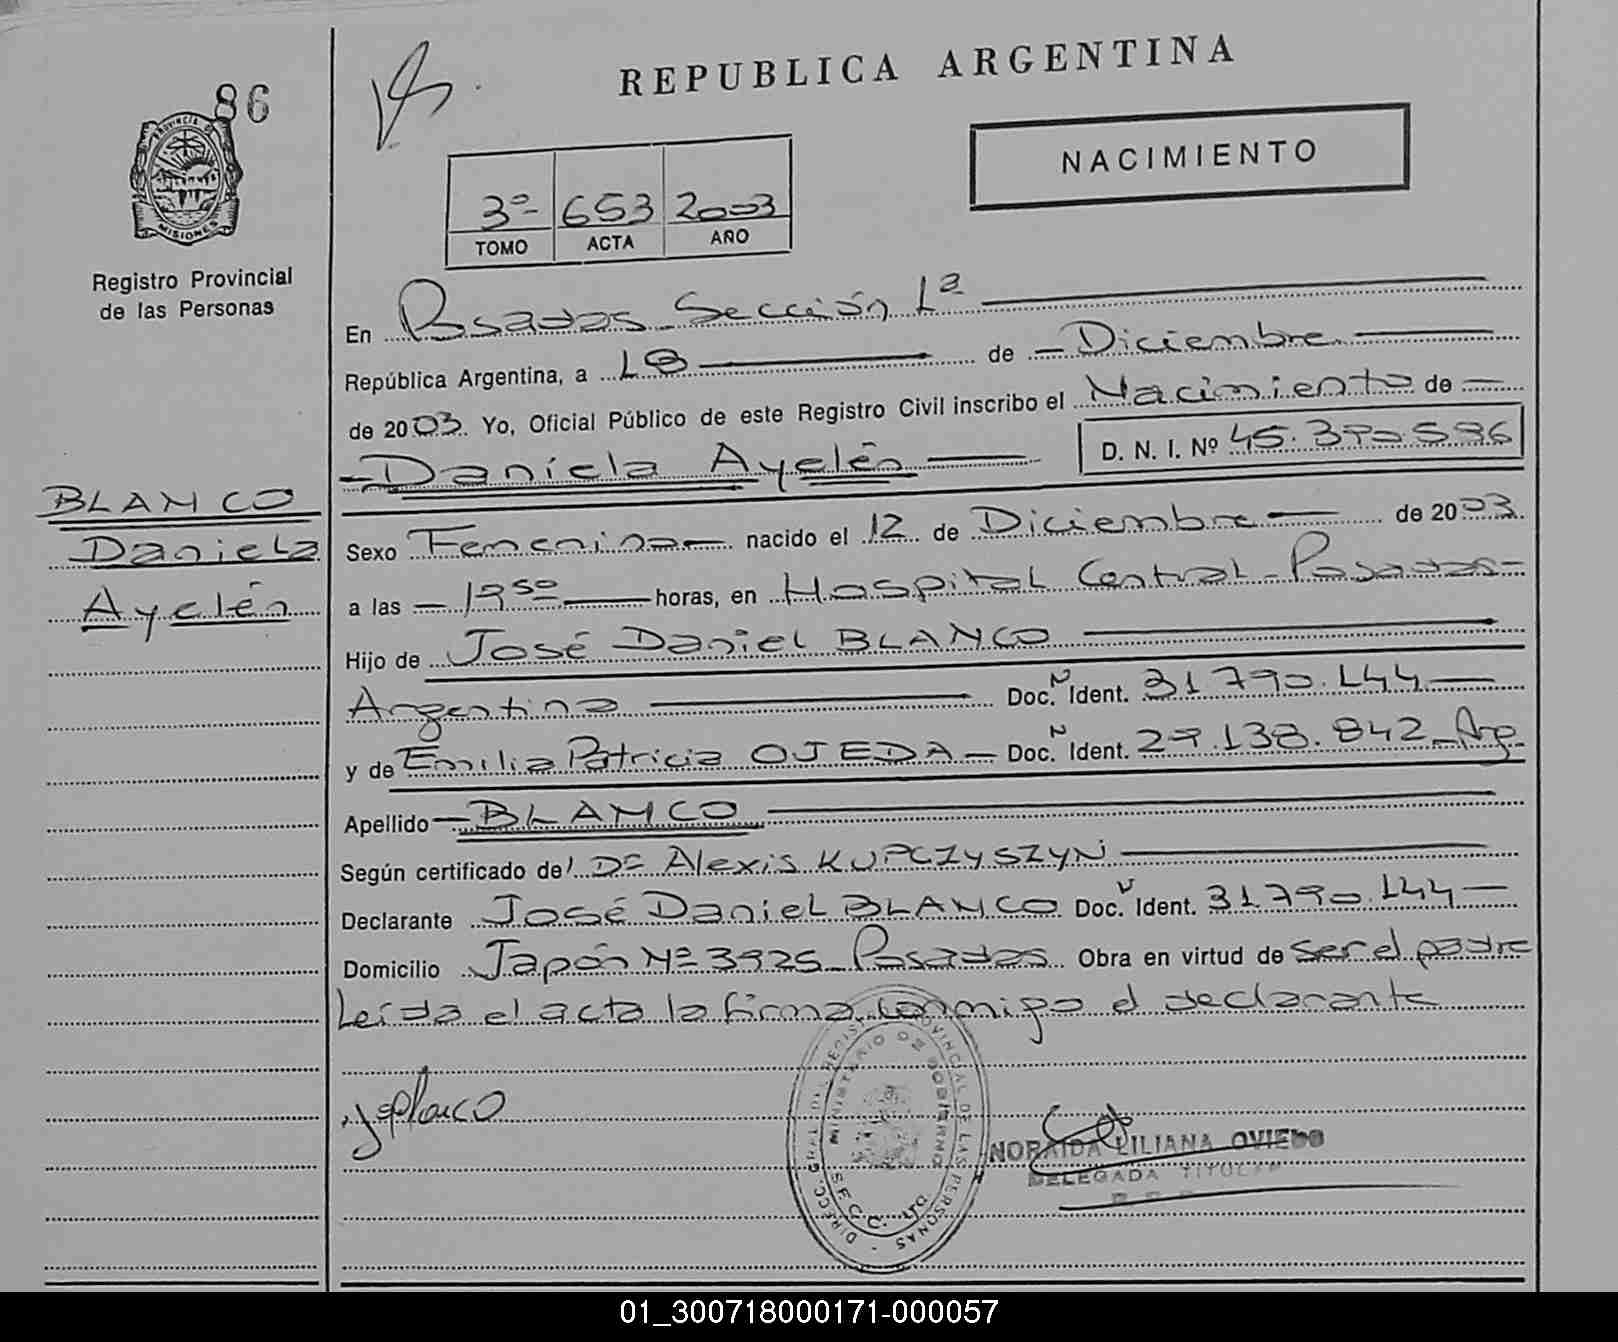 86
REPUBLICA ARGENTINA
NACIMIENTO
PROVINCIA DE
MISIONES
3º 653 2003
TOMO ACTA AÑO
Registro Provincial
de las Personas
En Posadas Sección 1ª
República Argentina, a 18 de Diciembre
de 2003. Yo, Oficial Público de este Registro Civil inscribo el Nacimiento de
Daniela Ayelén D. N. I. Nº 45.390.596
BLANCO
Daniela
Ayelén
Sexo Femenino nacido el 12 de Diciembre de 2003
a las 19 50 horas, en Hospital Central - Posadas
Hijo de José Daniel BLANCO
Argentino Doc. N Ident. 31.790.144
y de Emilia Patricia OJEDA Doc. N Ident. 29.138.842 Arg.
Apellido BLANCO
Según certificado de Dr Alexis KUPCZYSZYN
Declarante José Daniel BLANCO Doc. Ident. 31.790.144
Domicilio Japón Nº 3925 Posadas Obra en virtud de ser el padre
Leída el acta la firma conmigo el declarante
DIRECC. GRAL. DEL REGIST. PROVINCIAL DE LAS PERSONAS
MINISTERIO DE GOBIERNO
SECC.
NORAIDA LILIANA OVIEDO
DELEGADA TITULAR
01_300718000171-000057